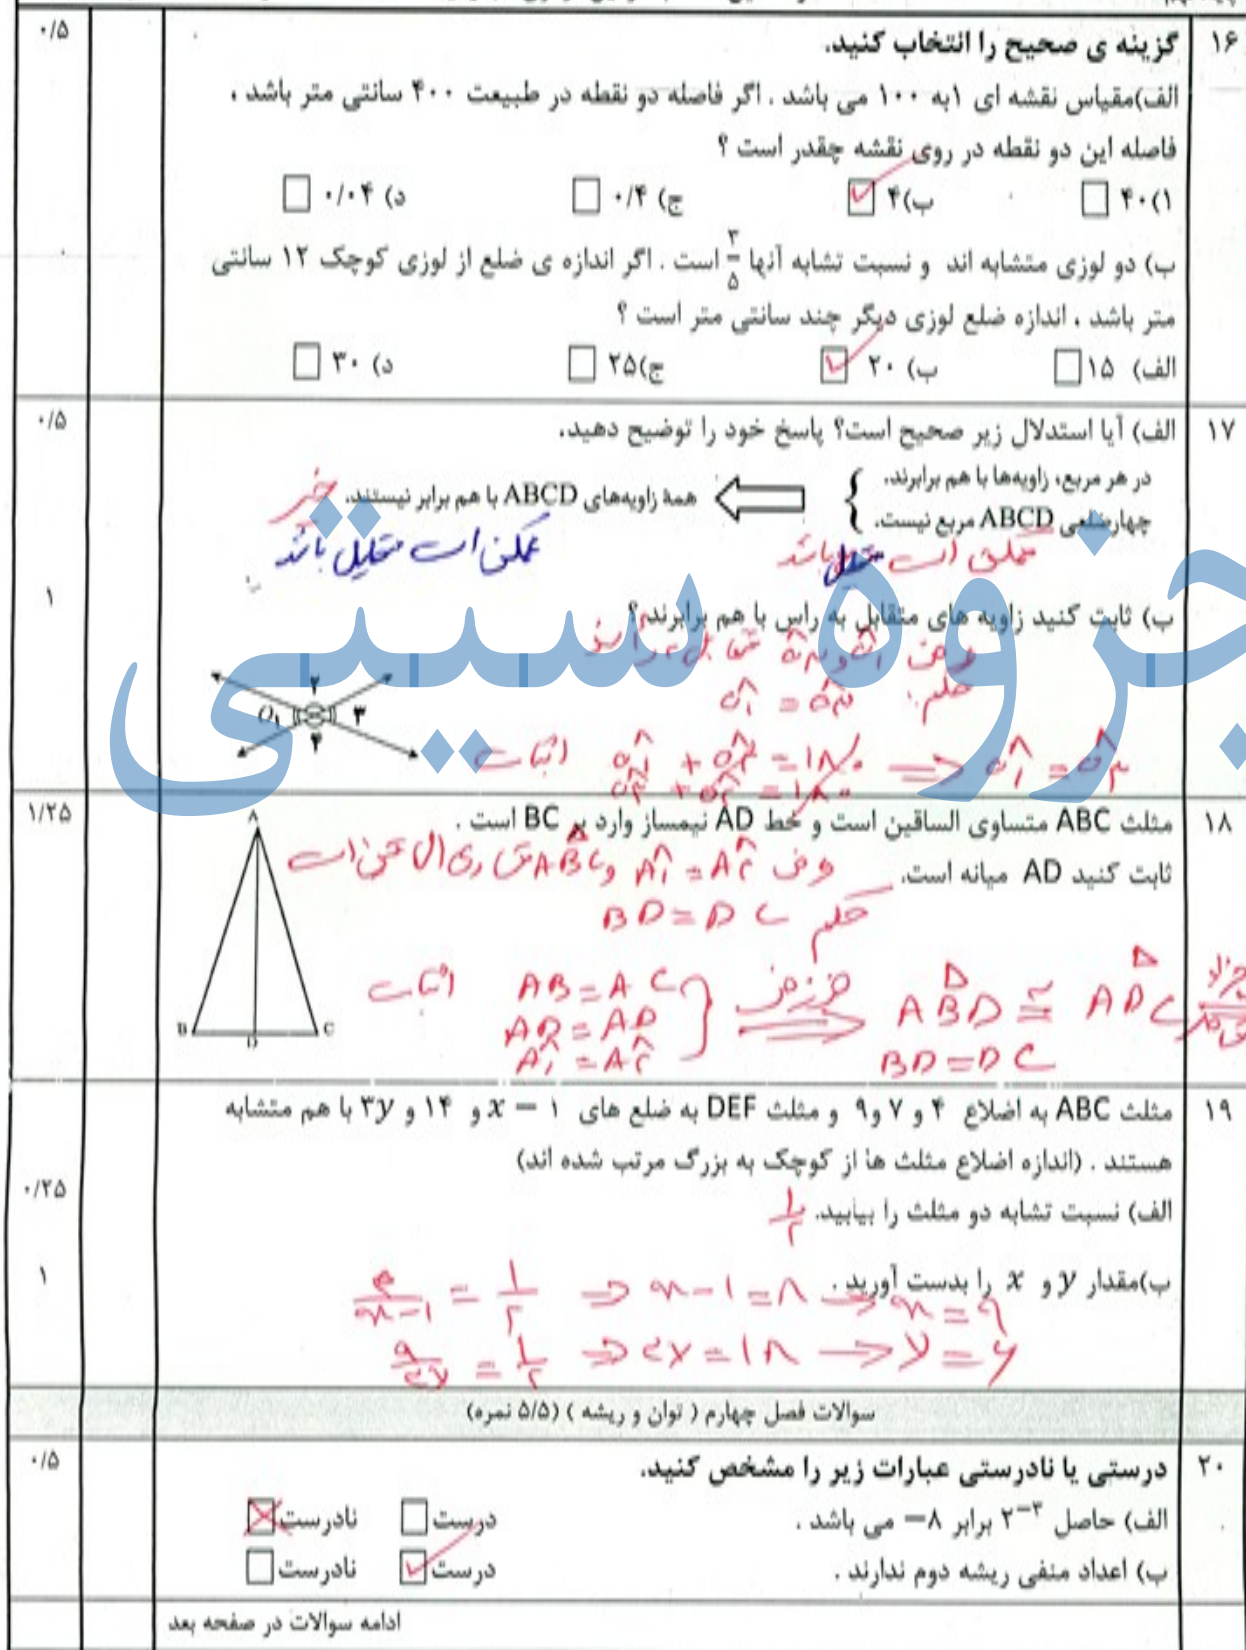 ۱۶
۰/۵
گزینه ی صحیح را انتخاب کنید.
الف)مقیاس نقشه ای ۱به ۱۰۰ می باشد . اگر فاصله دو نقطه در طبیعت ۴۰۰ سانتی متر باشد ،
فاصله این دو نقطه در روی نقشه چقدر است ؟
۱)۴۰ ب)۴ ج) ۰/۴ د) ۰/۰۴
ب) دو لوزی متشابه اند و نسبت تشابه آنها ۳/۵ است . اگر اندازه ی ضلع از لوزی کوچک ۱۲ سانتی
متر باشد ، اندازه ضلع لوزی دیگر چند سانتی متر است ؟
الف) ۱۵ ب) ۲۰ ج)۲۵ د) ۳۰
۱۷
۰/۵
الف) آیا استدلال زیر صحیح است؟ پاسخ خود را توضیح دهید.
در هر مربع، زاویه‌ها با هم برابرند.
چهارضلعی ABCD مربع نیست.
همهٔ زاویه‌های ABCD با هم برابر نیستند. خیر
ممکن است مستطیل باشد
ممکن است مستطیل باشد
۱
ب) ثابت کنید زاویه های متقابل به راس با هم برابرند؟
جزوه سیتی
۲
O۱ ۳
۴
حکم:
اثبات
مثلث ABC متساوی الساقین است و خط AD نیمساز وارد بر BC است .
۱۸
۱/۲۵
ثابت کنید AD میانه است.
A
B D C
حکم BD = DC
اثبات
AB = AC
AD = AD
Â۱ = Â۲
ض ز ض
ABD ≅ ADC
BD = DC
۱۹
مثلث ABC به اضلاع ۴ و ۷ و۹ و مثلث DEF به ضلع های x – ۱ و ۱۴ و ۳y با هم متشابه
هستند . (اندازه اضلاع مثلث ها از کوچک به بزرگ مرتب شده اند)
۰/۲۵
الف) نسبت تشابه دو مثلث را بیابید. ۱/۲
۱
ب)مقدار y و x را بدست آورید.
۴/x-۱ = ۱/۲ ⇒ x-۱=۸ → x=۹
۹/۳y = ۱/۲ ⇒ ۳y=۱۸ → y=۶
سوالات فصل چهارم ( توان و ریشه ) (۵/۵ نمره)
۲۰
۰/۵
درستی یا نادرستی عبارات زیر را مشخص کنید.
الف) حاصل ۲⁻³ برابر ۸– می باشد . درست نادرست
ب) اعداد منفی ریشه دوم ندارند . درست نادرست
ادامه سوالات در صفحه بعد